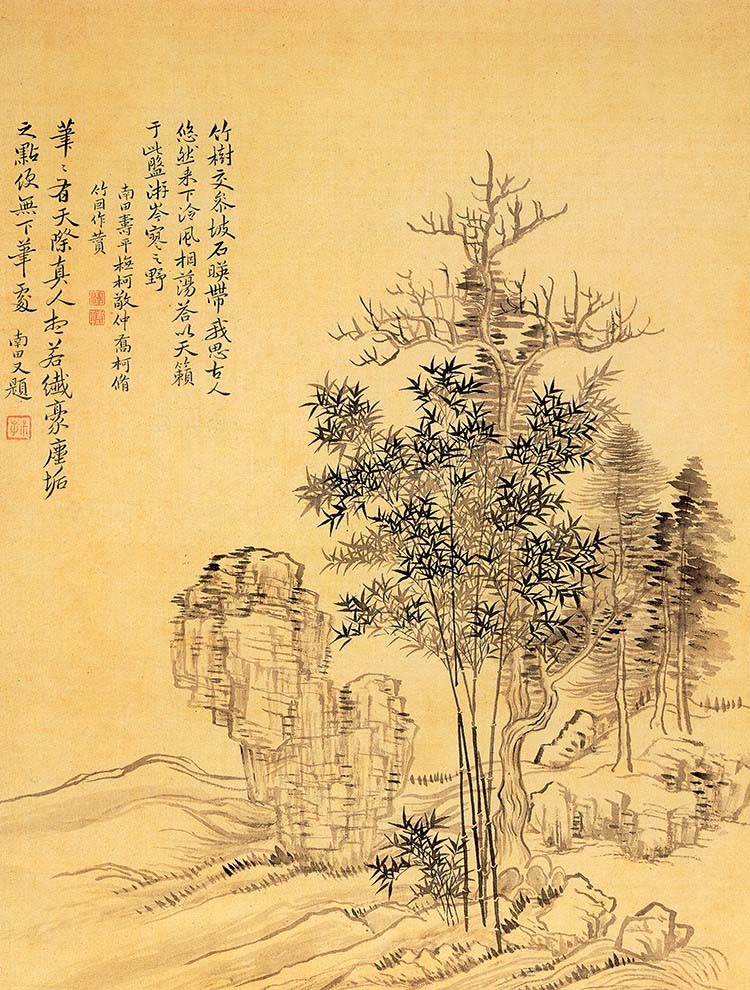 竹樹交參坡石暎帶我思古人
悠然来下泠風相蕩荅以天籟
于此盤游岑之野
南田壽平橅柯敬仲喬柯脩
竹因作贊
筆〻有天際真人想若纖豪塵垢
之點便無下筆處 南田又題